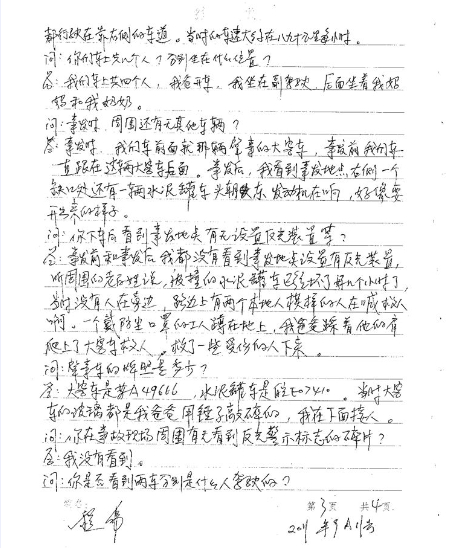 都行驶在靠右侧的车道。当时的车速大约在八九十公里每小时。
问：你们车上共几个人？分别坐在什么位置？
答：我们车上共四个人，我爸开车，我坐在副驾驶，后面坐着我妈
妈和我奶奶。
问：事发时，周围还有无其他车辆？
答：事发时，我们车前面就那辆肇事的大客车，事发前我们车一
直跟在这辆大客车后面。事发后，我看到事发地点右侧一个
缺口处还有一辆水泥罐车头朝东，发动机在响，好像要
开出来的样子。
问：你下车后看到事发地点有无设置反光装置等？
答：事发前和事发后我都没有看到事发地点设置有反光装置，
听周围的老百姓说，被撞的水泥罐车已经坏了好几个小时了，
当时没有人在旁边，路边上有两个本地人模样的人在喊救人
啊。一个戴防尘口罩的工人蹲在地上，我爸爸踩着他的肩
爬上了大客车救人。救了一些受伤的人下来。
问：肇事车的牌照是多少？
答：大客车是苏A49666，水泥罐车是皖E07410。当时大客
车的玻璃都是我爸爸用锤子敲碎的，我在下面接人。
问：你在事故现场周围有无看到反光警示标志的碎片？
答：我没有看到。
问：你是否看到两车分别是什么人驾驶的？
第3页 共4页
2011年9月